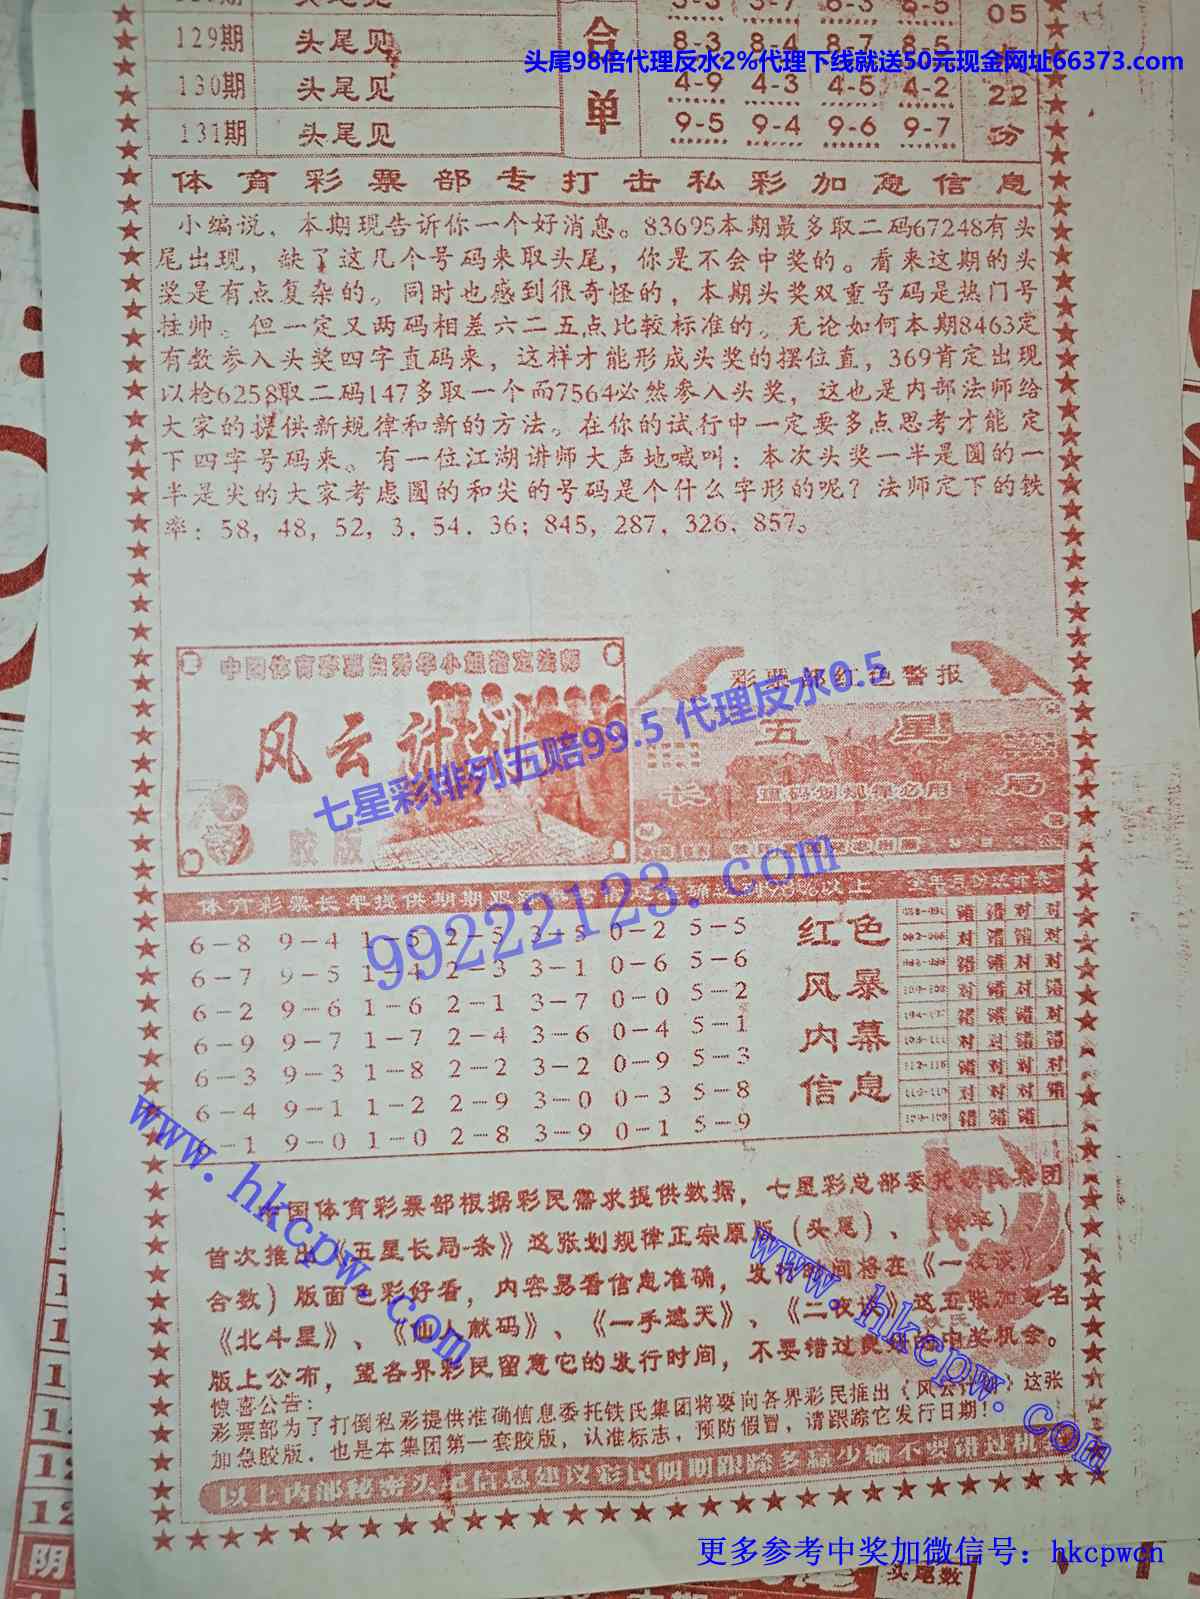 129期 头尾见 合 8-3 8-4 8-7 8-5
头尾98倍代理反水2%代理下线就送50元现金网址66373.com
130期 头尾见 单 4-9 4-3 4-5 4-2 22
131期 头尾见 9-5 9-4 9-6 9-7 份
体育彩票部专打击私彩加急信息
小编说，本期现告诉你一个好消息。83695本期最多取二码67248有头
尾出现，缺了这几个号码来取头尾，你是不会中奖的。看来这期的头
奖是有点复杂的。同时也感到很奇怪的，本期头奖双重号码是热门号
挂帅。但一定又两码相差六二五点比较标准的。无论如何本期8463定
有数参入头奖四字直码来，这样才能形成头奖的摆位直，369肯定出现
以枪6258取二码147多取一个而7564必然参入头奖，这也是内部法师给
大家的提供新规律和新的方法。在你的试行中一定要多点思考才能定
下四字号码来。有一位江湖讲师大声地喊叫：本次头奖一半是圆的一
半是尖的大家考虑圆的和尖的号码是个什么字形的呢？法师定下的铁
率：58，48，52，3，54，36；845，287，326，857。
中国体育彩票白秀华小姐指定法师
风云计划
胶版
彩票部红色警报
五星
长局
七星彩排列五赔99.5 代理反水0.5
99222123.com
6-8 9-4 1-5 2-5 3-5 0-2 5-5
6-7 9-5 1-4 2-3 3-1 0-6 5-6
6-2 9-6 1-6 2-1 3-7 0-0 5-2
6-9 9-7 1-7 2-4 3-6 0-4 5-1
6-3 9-3 1-8 2-2 3-2 0-9 5-3
6-4 9-1 1-2 2-9 3-0 0-3 5-8
6-1 9-0 1-0 2-8 3-9 0-1 5-9
红色
风暴
内幕
信息
www.hkcpw.com
www.hkcpw.com
中国体育彩票部根据彩民需求提供数据，七星彩总部委托铁氏集团
首次推出《五星长局-条》这张划规律正宗原版（头尾）、（铁率）、（
合数）版面色彩好看，内容易看信息准确，发行时间将在《一夜谈》
《北斗星》、《仙人献码》、《一手遮天》、《二夜谈》这五张加急名
版上公布，望各界彩民留意它的发行时间，不要错过良好的中奖机会。
惊喜公告：
彩票部为了打倒私彩提供准确信息委托铁氏集团将要向各界彩民推出《风云计划》这张
加急胶版，也是本集团第一套胶版，认准标志，预防假冒，请跟踪它发行日期！
以上内部秘密头尾信息建议彩民期期跟踪多赢少输不要错过机会
更多参考中奖加微信号：hkcpwcn
阴
头尾数